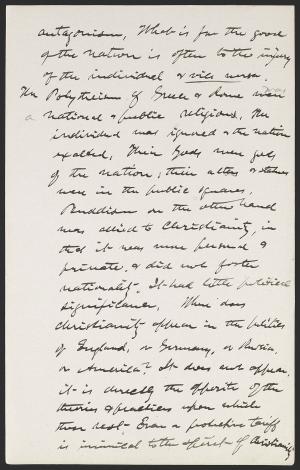 antagonism. What is for the good
of the nation is often to the injury
of the individual & vice versa.
The Polytheism of Greece & Rome was
a national & public religious. The
individual was ignored & the nation
exalted, Their Gods were gods
of the nation; their altars & statues
were in the public squares,
Buddhism on the other hand
was allied to Christianity, in
that it was more personal &
private, & did not foster
nationality. It had little political
significance. Where does
christianity appear in the politics
of England, or Germany, or Russia
or America? It does not appear,
it is directly the opposite of the
theories & practices upon which
these rest. Even a protective tariff
is inimical to the spirit of Christianity